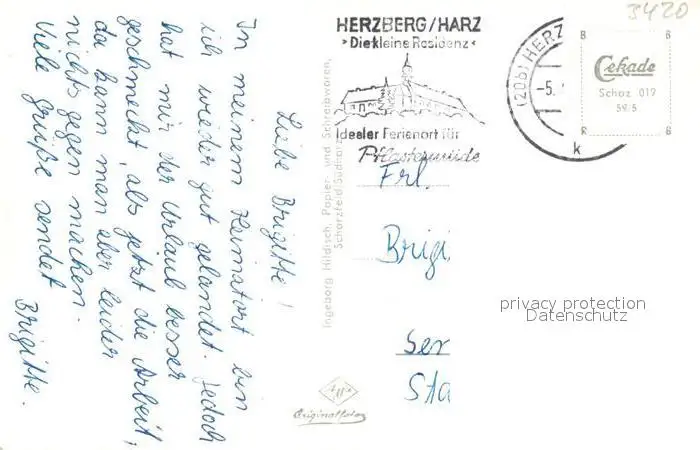 Liebe Brigitte!
In meinem Heimatort bin
ich wieder gut gelandet. Jedoch
hat mir der Urlaub besser
geschmeckt, als jetzt die Arbeit,
da kann man aber leider
nichts gegen machen.
Viele Grüße sendet
Brigitte.
Ingeborg Hildisch, Papier- und Schreibwaren,
Scharzfeld/Südharz
HERZBERG/HARZ
Die kleine Residenz
Idealer Ferienort für
Pflastermüde
(20b) HERZ
-5.
k
3420
B B
Cekade
Schaz 019
59/5
R R
Frl.
Brigi
Ser
Sta
privacy protection
Datenschutz
Agfa
Originalfoto